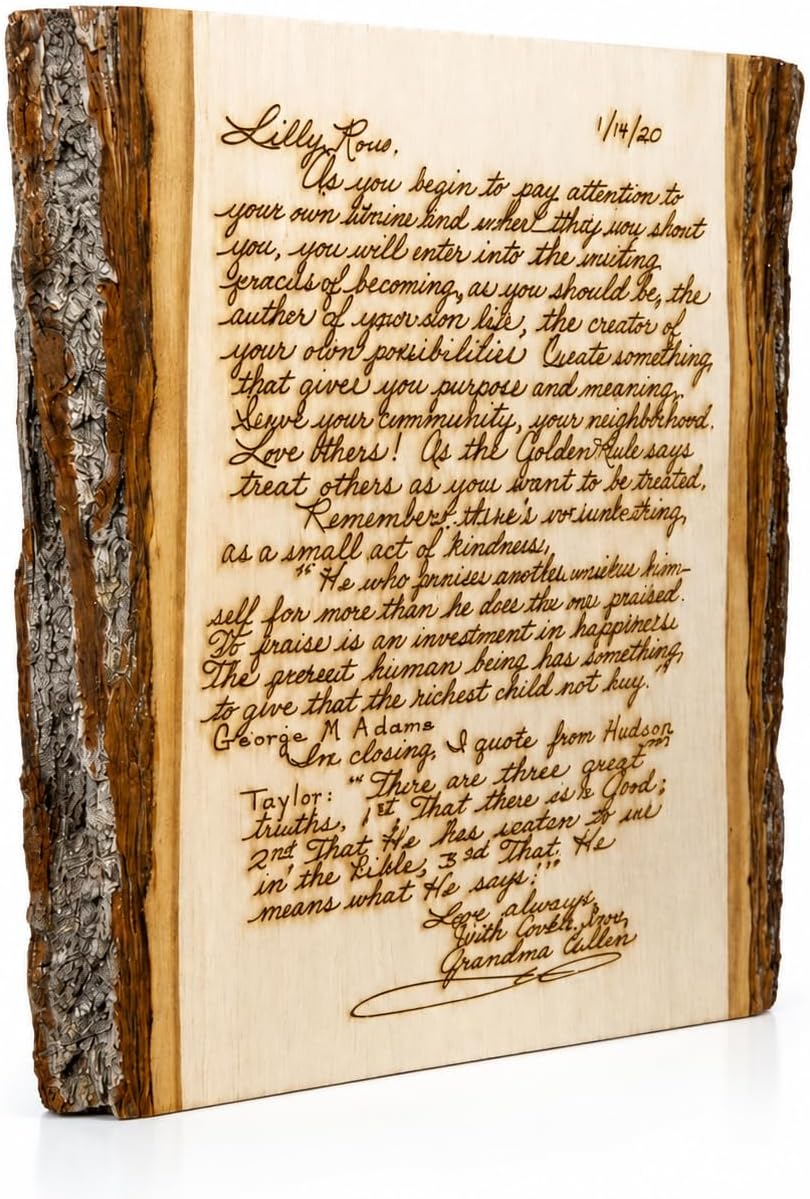 Lilly Rous, 1/14/20
As you begin to pay attention to
your own and you shout
you, you will enter into the
of becoming, as you should be, the
auther of life, the creator of
your own possibilities Create something
that gives you purpose and meaning.
Serve your community, your neighborhood.
Love Others! As the Golden Rule says
treat others as you want to be treated.
Remember
as a small act of kindness,
"He who praises another him-
self for more than he does the one praised.
To praise is an investment in happiness
The human being has something
to give that the richest child not buy."
George M Adams
In closing, I quote from Hudson
Taylor: "There are three great
truths, 1st That there is a Good;
2nd That He has to us
in the Bible, 3rd That He
means what He says!"
Love always,
With
Grandma Cullen